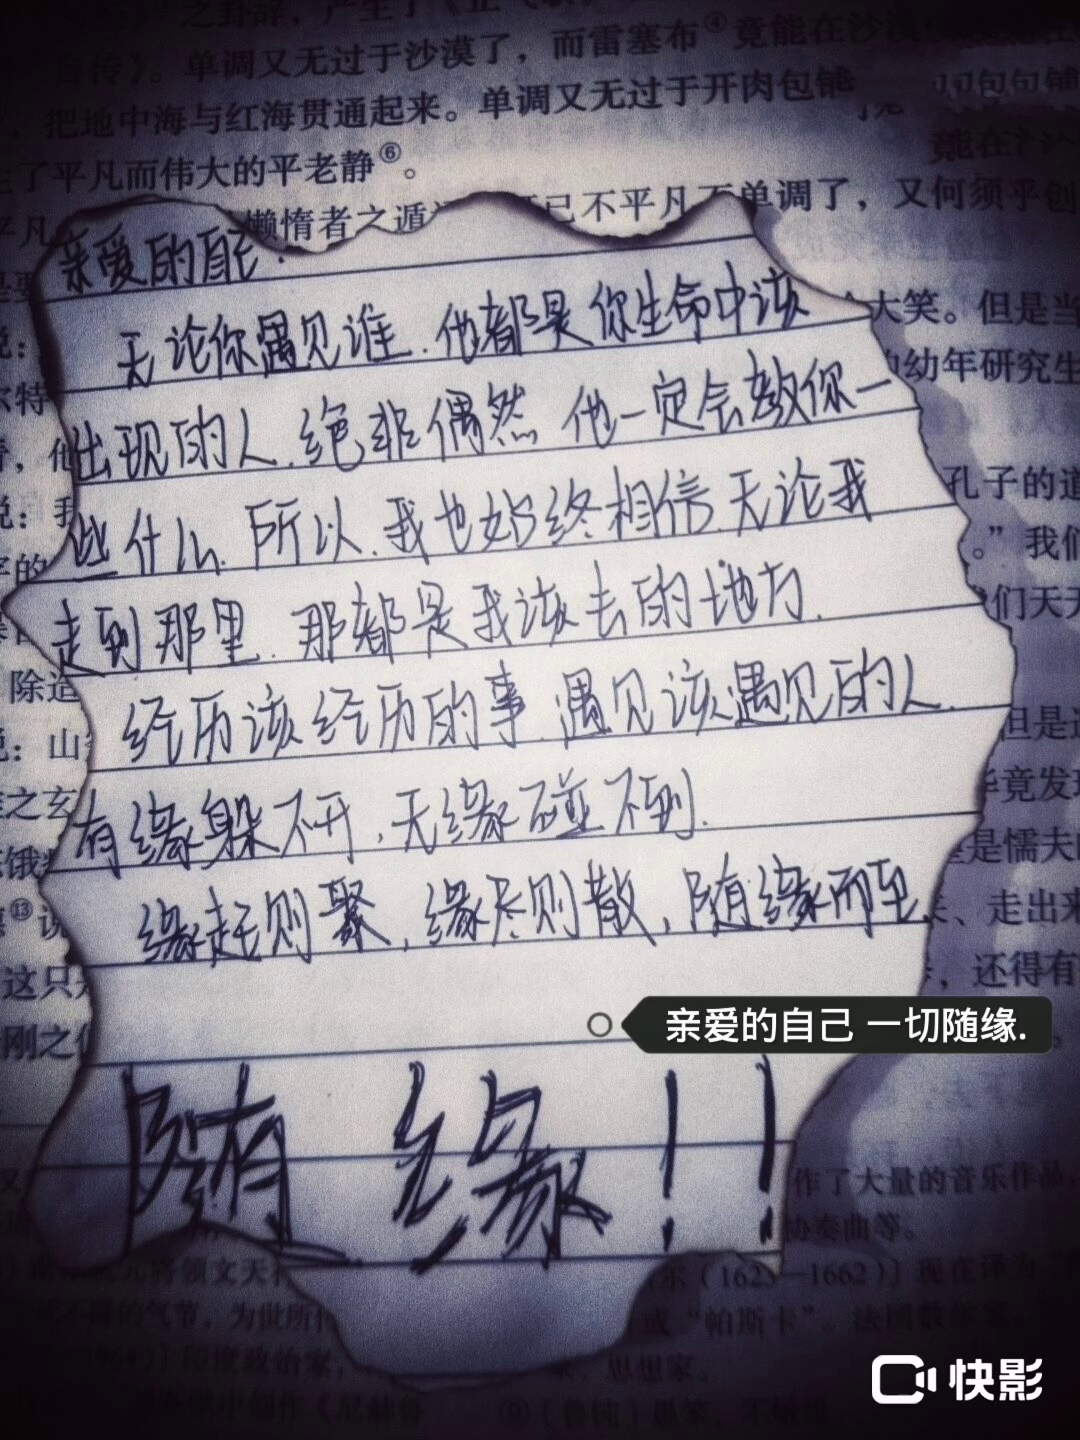 之卦辞，产生了《正气歌
自传》。单调又无过于沙漠了，而雷塞布④竟能在沙漠
，把地中海与红海贯通起来。单调又无过于开肉包铺
竟能在
了平凡而伟大的平老静⑥。
平凡
懒惰者之遁
已不平凡而单调了，又何须乎创
亲爱的自己：
大笑。但是当
无论你遇见谁.他都是你生命中该
的幼年研究生
出现的人.绝非偶然 他一定会教你一
孔子的道
些什么.所以.我也始终相信.无论我
。”我们
走到那里.那都是我该去的地方.
们天天
除造
经历该经历的事.遇见该遇见的人.
但是
说：山
毕竟发现
有缘躲不开，无缘碰不到.
之玄
是懦夫
缘起则聚，缘尽则散，随缘而至
、走出来
⑬
这只是
，还得有
亲爱的自己 一切随缘.
刚之
随缘！！
作了大量的音乐作品，
协奏曲等。
将领文天
尔（1623—1662）］现在译为
的气节，为世所
或“帕斯卡”。法国数学家、
］印度政治家，
、思想家。
中创作《尼赫鲁
快影